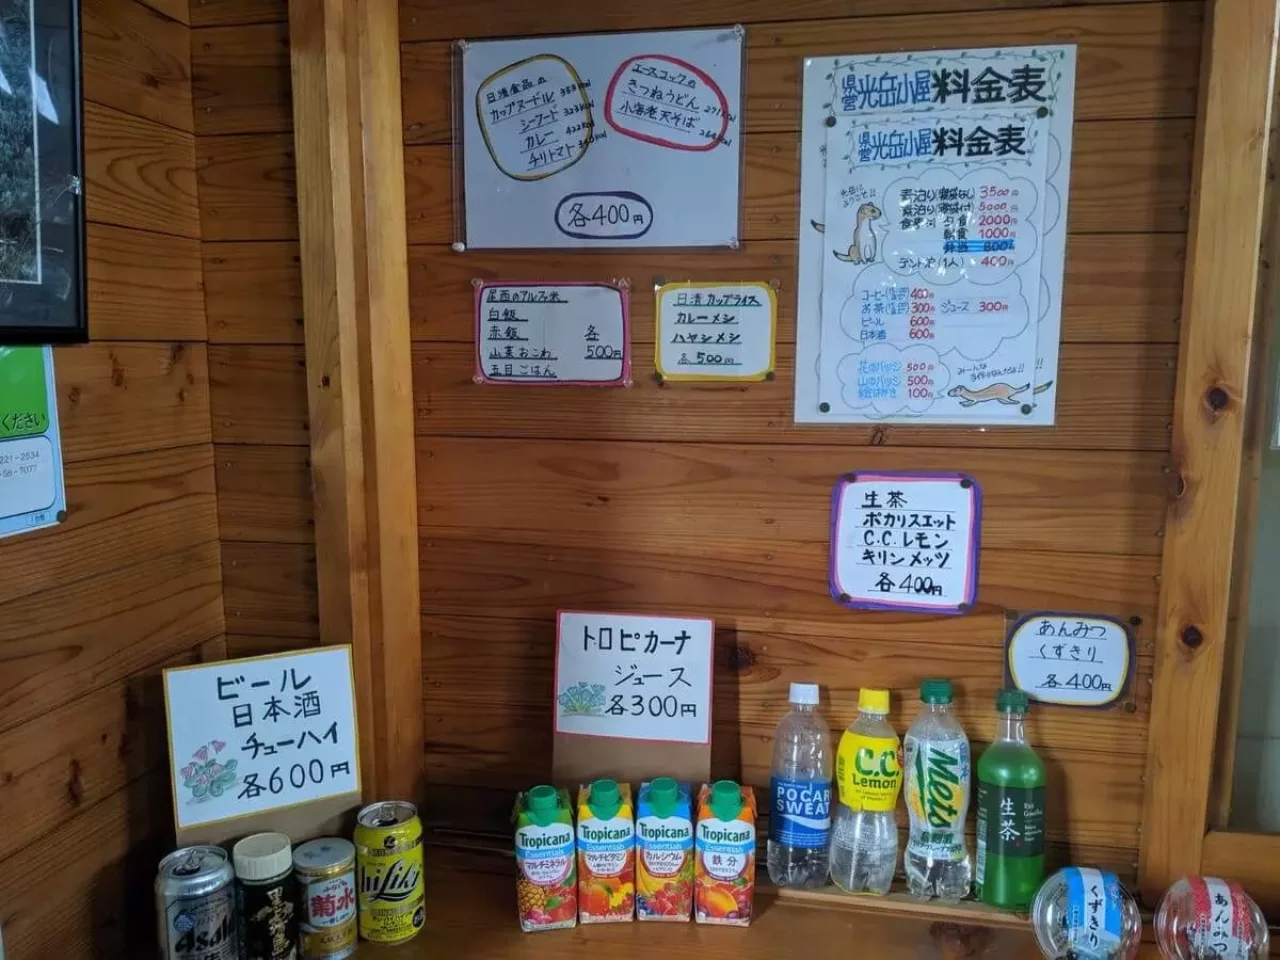 日清食品の
カップヌードル 353kcal
シーフード 323kcal
カレー 422kcal
チリトマト
エースコックの
きつねうどん 271kcal
小海老天そば 264kcal
各400円
県営光岳小屋 料金表
県営光岳小屋 料金表
光岳に
ようこそ!!
素泊り(寝袋なし) 3500円
素泊り(寝袋付) 5000円
夕食 2000円
朝食 1000円
弁当 800円
テント泊(1人) 400円
コーヒー 400円
お茶 300円 ジュース 300円
ビール 600円
日本酒 600円
花のバッジ 500円
山のバッジ 500円
絵はがき 100円
みーんな
尾西のアルファ米
白飯
赤飯 各
山菜おこわ 500円
五目ごはん
日清カップライス
カレーメシ
ハヤシメシ
各500円
ください
221-2534
-58-7077
生茶
ポカリスエット
C.C.レモン
キリンメッツ
各400円
あんみつ
くずきり
各400円
トロピカーナ
ジュース
各300円
ビール
日本酒
チューハイ
各600円
Asahi
菊水
hiLiki
Tropicana
Essentials
マルチミネラル
Tropicana
Essentials
マルチビタミン
Tropicana
Essentials
カルシウム
Tropicana
Essentials
鉄分
POCARI
SWEAT
C.C.
Lemon
Mets
生茶
くずきり
あんみつ